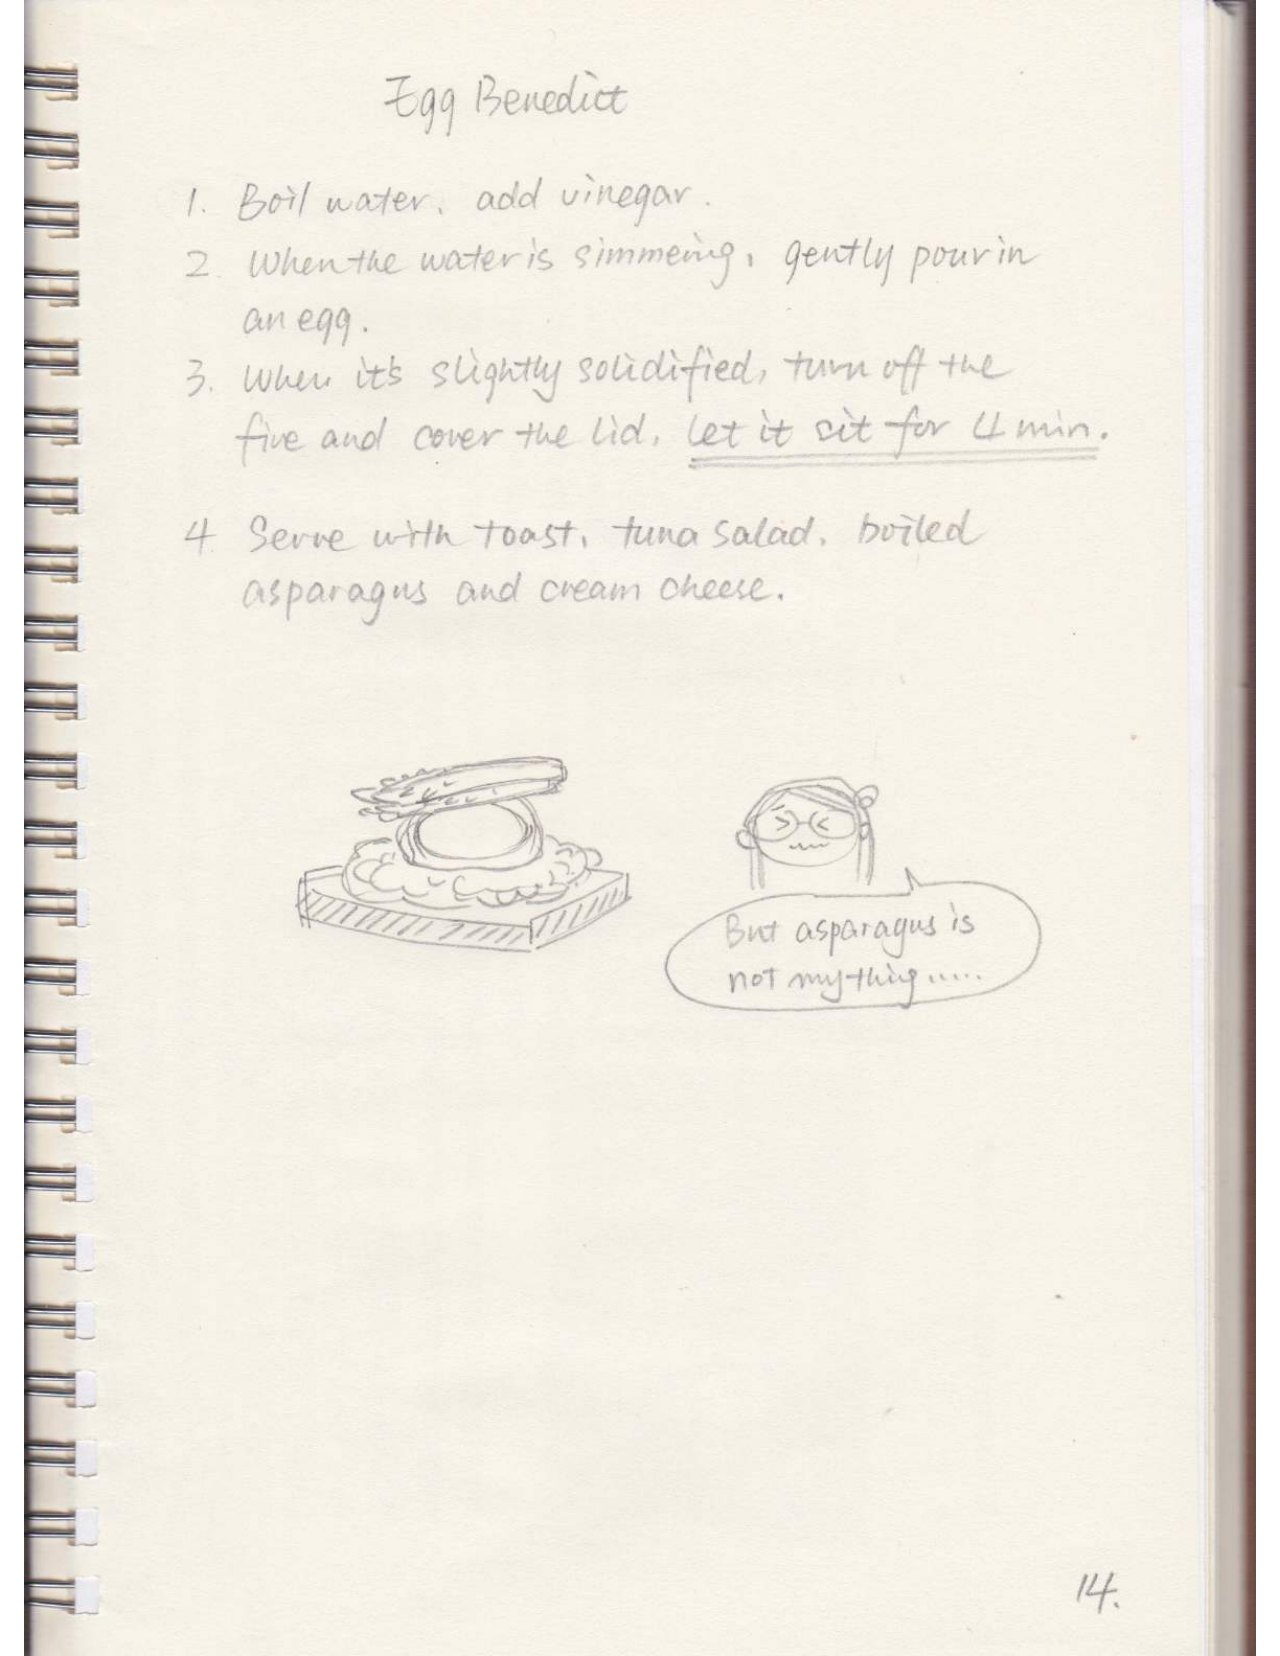 Egg Benedict
1. Boil water, add vinegar.
2. When the water is simmeing, gently pour in
an egg.
3. When it's slightly solidified, turn off the
fire and cover the lid, let it sit for 4 min.
4. Serve with toast, tuna salad, boiled
asparagus and cream cheese.
But asparagus is
not my thing.....
14.